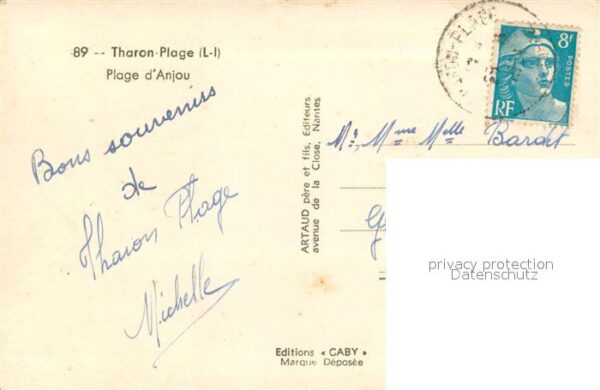 89 -- Tharon-Plage (L-I)
Plage d'Anjou
Bons souvenirs
de
Tharon Plage
Michelle
ARTAUD père et fils, Editeurs
avenue de la Close, Nantes
Editions « GABY »
Marque Déposée
THARON-PLAGE
8F
POSTES
RF
Mr, Mme Melle
privacy protection
Datenschutz